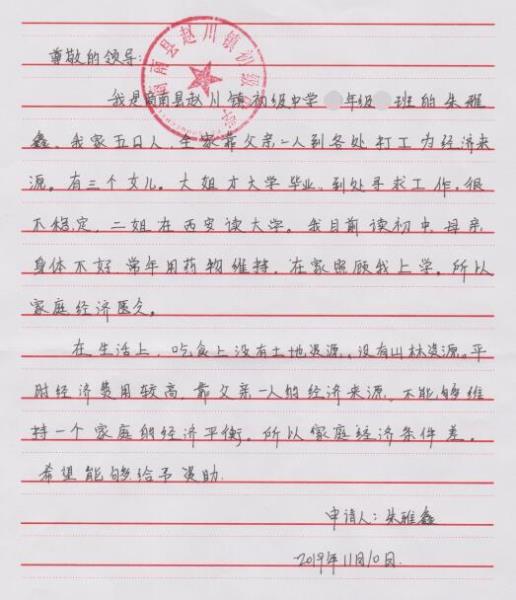 商南县赵川镇初级中学
尊敬的领导:
我是商南县赵川镇初级中学 年级 班的朱雅
鑫。我家五口人,全家靠父亲一人到各处打工为经济来
源。有三个女儿。大姐才大学毕业,到处寻求工作,很
不稳定,二姐在西安读大学。我目前读初中,母亲
身体不好,常年用药物维持,在家照顾我上学。所以
家庭经济匮乏。
在生活上,吃食上没有土地资源,没有山林资源。平
时经济费用较高,靠父亲一人的经济来源,不能够维
持一个家庭的经济平衡。所以家庭经济条件差。
希望能够给予资助.
申请人:朱雅鑫
2019年11月10日.